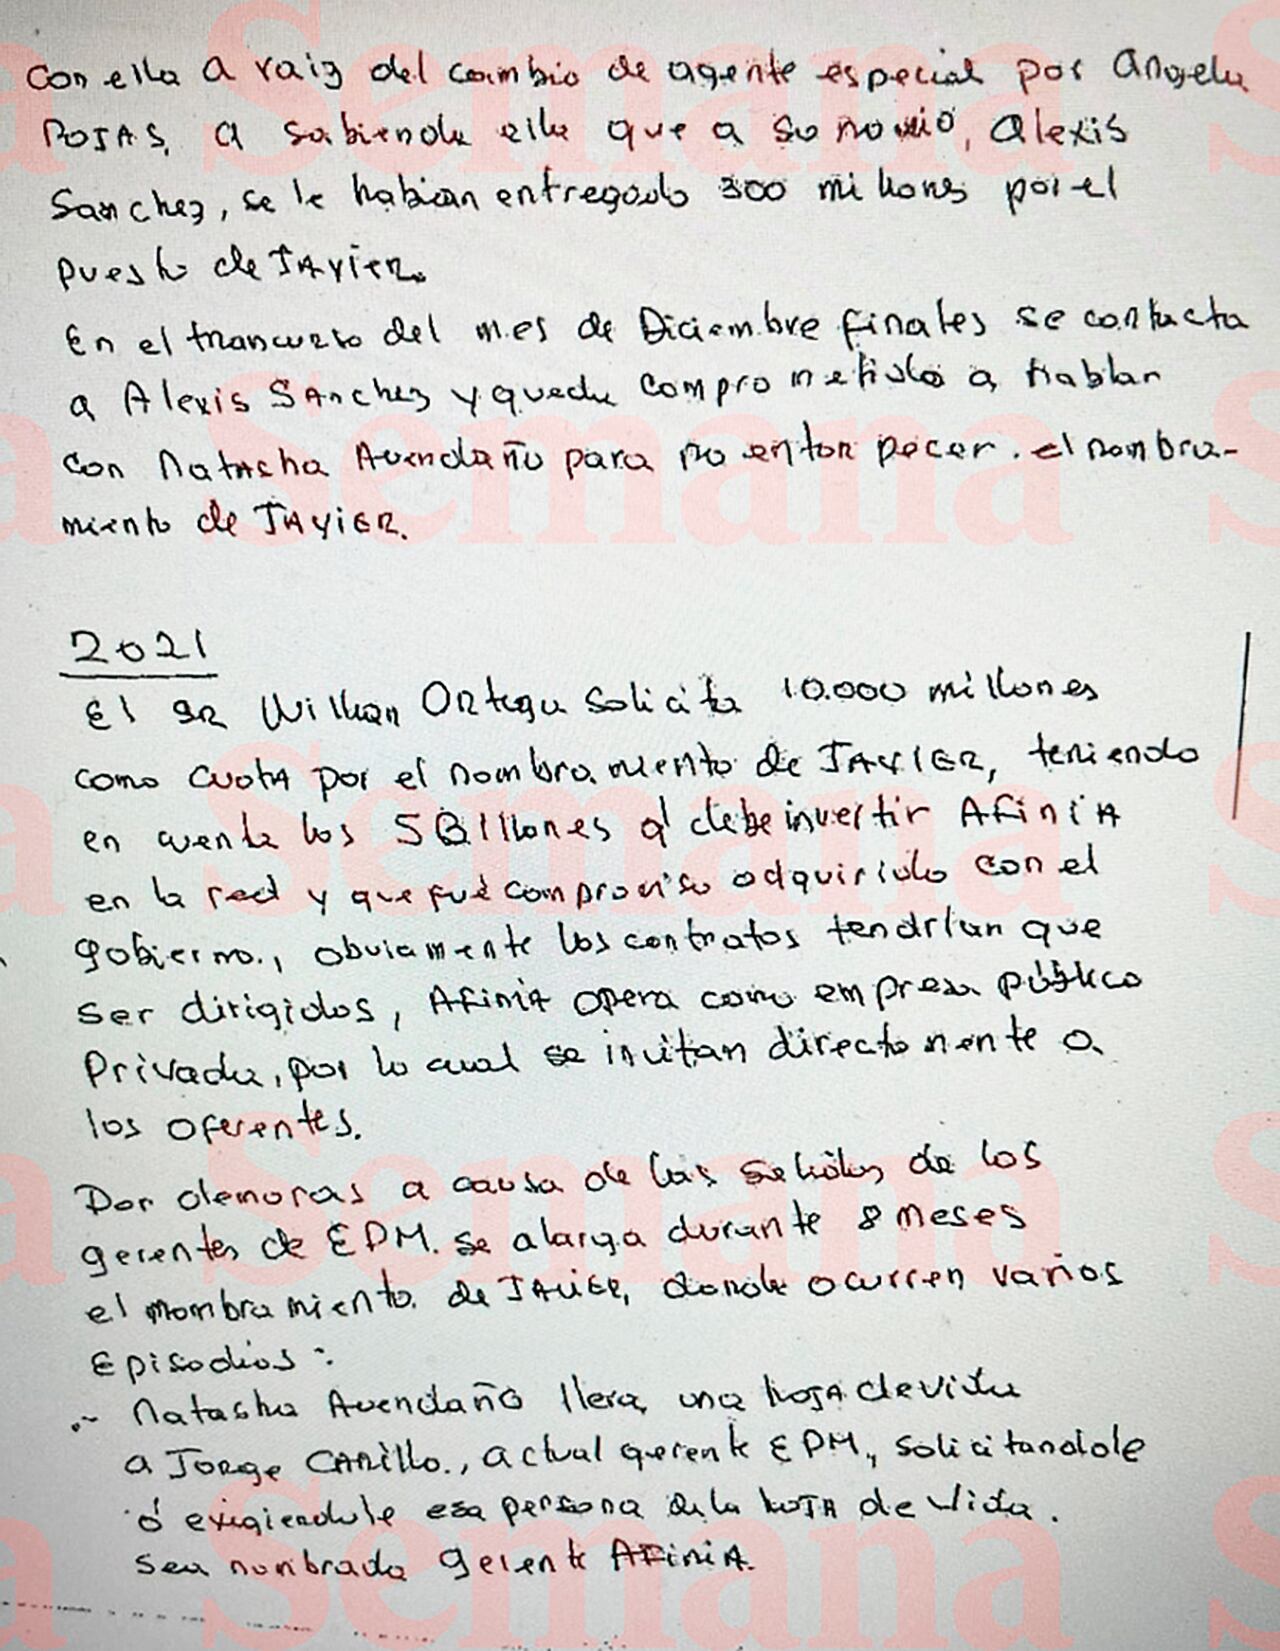 con ella a raiz del cambio de agente especial por Angela
ROJAS, a sabienda ella que a su novio, Alexis
Sanchez, se le habian entregado 300 millones por el
puesto de JAVIER.
En el trancurso del mes de Diciembre finales se contacta
a Alexis SAnchez y queda comprometido a hablar
con Natacha Avendaño para no entorpecer. el nombra-
miento de JAVIER.
2021
El SR Willian Ortega solicita 10.000 millones
como cuota por el nombramiento de JAVIER, teniendo
en cuenta los 5 Billones q' debe invertir AfiniA
en la red y que fué compromiso adquirido con el
gobierno., obviamente los contratos tendrían que
ser dirigidos, Afinia opera como empresa público
Privada, por lo cual se invitan directamente a
los oferentes.
Por demoras a causa de las salidas de los
gerentes de EPM. se alarga durante 8 meses
el nombramiento. de JAVIER, donde ocurren varios
Episodios:
.- Natasha Avendaño lleva una hoja de vida
a Jorge CARillo., actual gerente EPM., solicitandole
ó exigiendole esa persona de la hoja de vida.
sea nombrada gerente AFiniA.
Semana